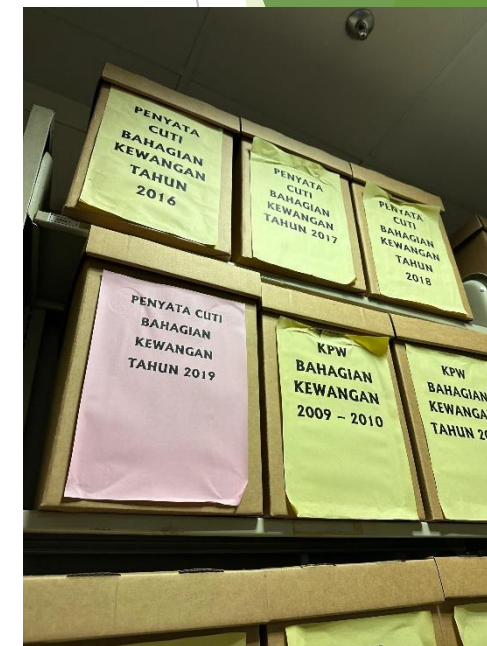 PENYATA
CUTI
BAHAGIAN
KEWANGAN
TAHUN
2016
PENYATA
CUTI
BAHAGIAN
KEWANGAN
TAHUN 2017
PENYATA
CUTI
BAHAGIAN
KEWANGAN
TAHUN
2018
PENYATA CUTI
BAHAGIAN
KEWANGAN
TAHUN 2019
KPW
BAHAGIAN
KEWANGAN
2009 – 2010
KPW
BAHAGIAN
KEWANGA
TAHUN